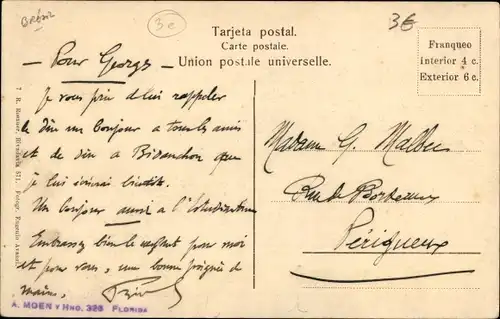 BRÉSIL
3e
3€
Tarjeta postal.
Carte postale.
Union postale universelle.
Franqueo
Interior 4 c.
Exterior 6 c.
— Pour Georges —
Je vous prie de lui rappeler
de dire un bonjour a tous les amis
et de dire a que
je lui écrirai bientôt.
Un bonjour aussi a
Embrassez bien le pour moi
et pour vous, une bonne poignée de
mains,
Madame G. Malbec
Rue de Bordeaux
Périgueux
7 R. Rosauer, Rivadavia 571. Fotogr. Eugenio Avanzi
A. MOEN Y HNO. 325 FLORIDA